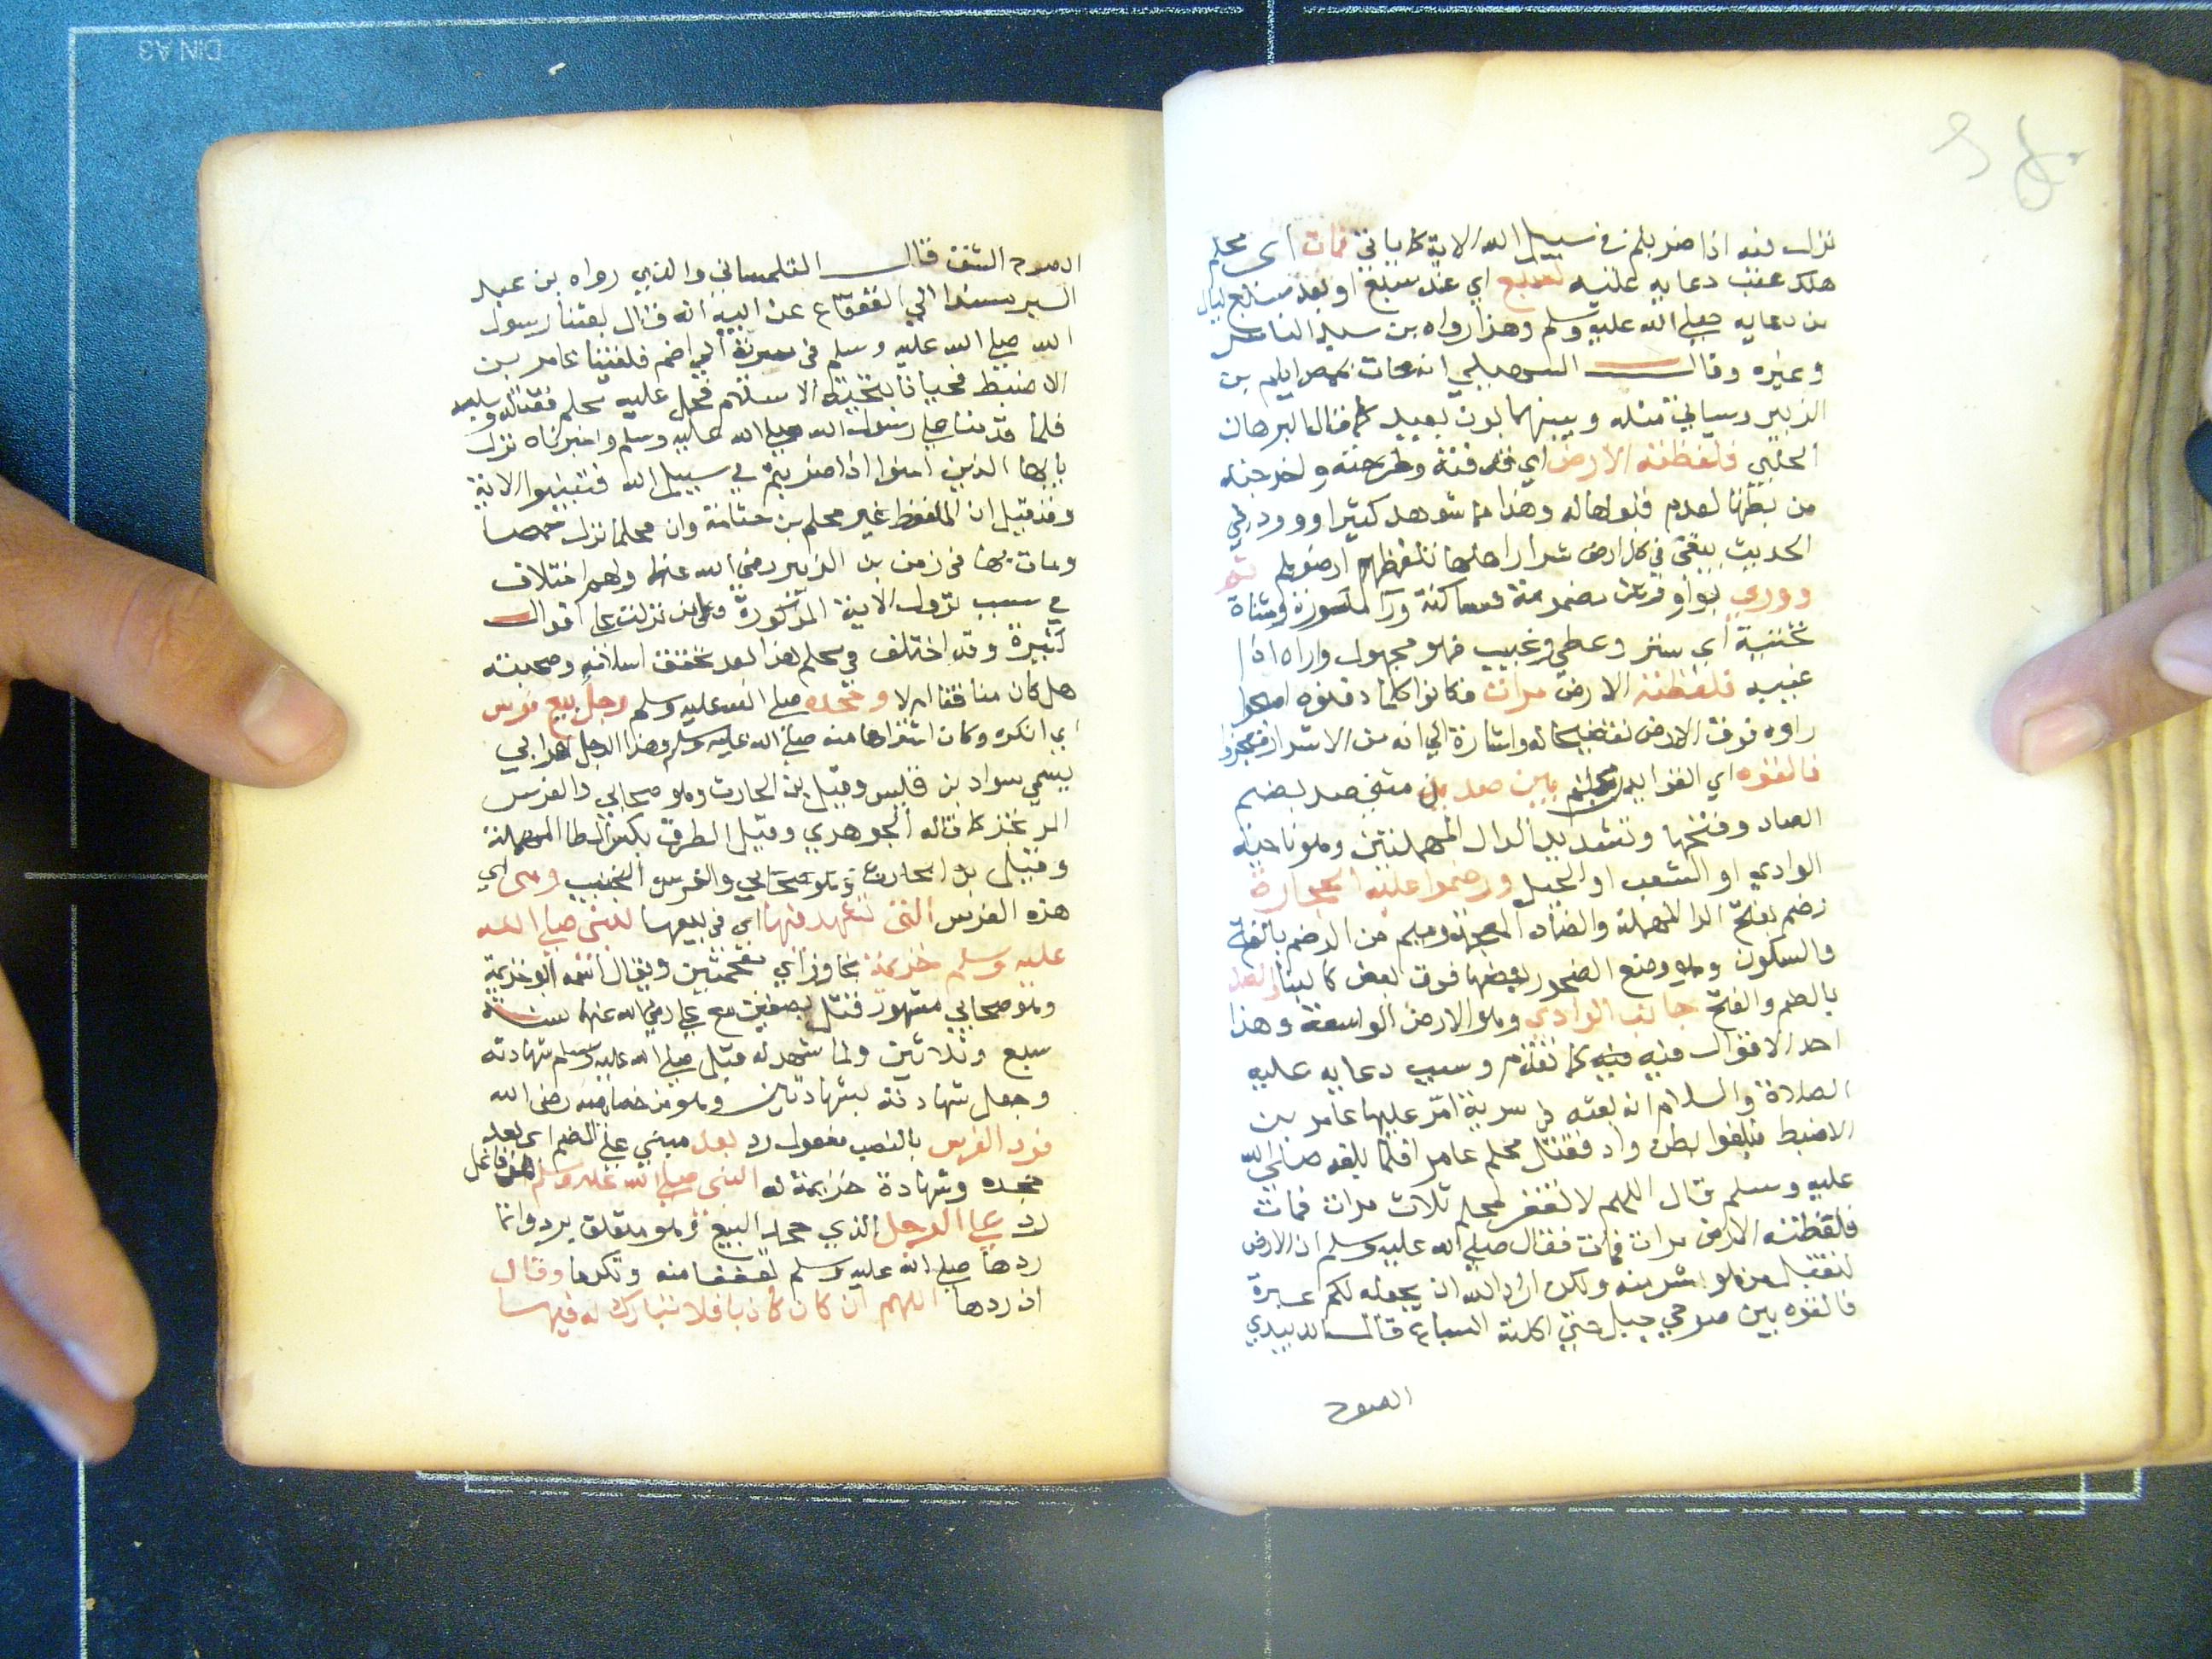 نزلت فيه اذا ضربتم في سبيل الله الاية كما ياتي فمات اي محلم
هلك عقب دعايه عليه لسبع اي عند سبع او بعد سبع ليال
من دعايه صلى الله عليه وسلم وهذا رواه بن سيد الناس
وغيره وقال السهيلي انه مات بحمص ايام بن
الزبير وسياتي مثله وبينهما بون بعيد كما قال البرهان
الحلبي فلفظته الارض اي قذفته وطرحته واخرجته
من بطنها لعدم قبولها له وهذا مما شوهد كثيرا وورد في
الحديث يبقى في كل ارض شرار اهلها تلفظهم ارضوهم ثم
ووري بواو مضمومة ساكنة ورا مكسورة ومثناة
تحتية اي ستر وغطي وغيب فهو مجهول واراه اذا
غيبه فلفظته الارض مرات فكانوا كلما دفنوه اصبحوا
راوه فوق الارض تفضيحا له واشارة الي انه من الاشرار فعجزوا
فالقوه اي القوا بين صدين متني صد بضم
الصاد وفتحها وتشديد الدال المهملتين وهو ناحية
الوادي او الشعب او الجبل ورضموا عليه الحجارة
رضم بفتح الرا المهملة والضاد المعجمة وميم من الرضم بالفتح
والسكون وهو وضع الصخور بعضها فوق بعض كالبنا والصد
بالضم والفتح جانب الوادي وهو الارض الواسعة وهذا
احد الاقوال فيه فيه كما تقدم وسبب دعايه عليه
الصلاة والسلام انه بعثه في سرية امر عليها عامر بن
الاضبط فبلغوا بطن واد فقتل محلم عامرا فلما بلغه صلى الله
عليه وسلم قال اللهم لا تغفر لمحلم ثلاث مرات فمات
فلفظته الارض مرات فمات فقال صلى الله عليه وسلم ان الارض
لتقبل من هو اشر منه ولكن اراد الله ان يجعله لكم عبرة
فالقوه بين صوحي جبل حتى اكلته السباع قال الزبيدي
الصوح
الصوح الشق قال التلمساني والذي رواه بن عبد
البر بسند الي القعقاع عن ابيه انه قال بعثنا رسول
الله صلى الله عليه وسلم في سرية الي اضم فلقينا عامر بن
الاضبط فحيانا بتحية الاسلام فحمل عليه محلم فقتله وسلبه
فلما قدمنا على رسول الله صلى الله عليه وسلم واخبرناه نزلت
يايها الذين امنوا اذا ضربتم في سبيل الله فتبينوا الاية
وقد قيل ان الملفوظ غير محلم بن جثامة وان محلما نزل حمصا
ومات بها في زمن بن الزبير رضي الله عنهما ولهم اختلاف
في سبب نزول الاية المذكورة وفيمن نزلت على اقوال
كثيرة وقد اختلف في محلم هذا بعد تحقق اسلامه وصحبته
هل كان منافقا ام لا وجحده صلى الله عليه وسلم رجل بيع فرس
اي انكره وكان اشتراها منه صلى الله عليه وسلم وهذا الرجل اعرابي
يسمي سواد بن قيس وقيل بن الحارث وهو صحابي والفرس
المرتجز كما قاله الجوهري وقيل الطرف بكسر الطا المهملة
وقيل بن الحارث وهو صحابي والفرس النجيب وهي اي
هذه الفرس التي شهد فيها اي في بيعها للنبي صلى الله
عليه وسلم خزيمة بخا وزاي معجمتين ويقال انه ابو خزيمة
وهو صحابي مشهور قتل بصفين مع علي رضي الله عنهما سنة
سبع وثلاثين ولما شهد له قبل صلى الله عليه وسلم شهادته
وجعل شهادته بشهادتين وهو من خصايصه رضي الله
فرد الفرس بالنصب مفعول رد بعد مبني على الضم اي بعد
جحده وشهادة خزيمة له النبي صلى الله عليه وسلم هو فاعل
رد على الرجل الذي جحد البيع وهو متعلق برد وانما
ردها صلى الله عليه وسلم تعففا منه وتكرما وقال
اذ ردها اللهم ان كان كاذبا فلا تبارك له فيها